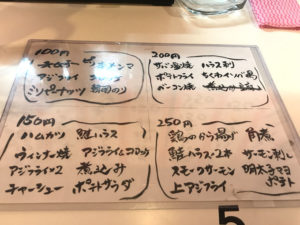 100円
メンマ
アジフライ
ピリ辛ナッツ 韓国のり
200円
さば塩焼 ハラス刺
ポテトフライ ちくわイソベ揚
ベーコン焼
150円
ハムカツ 鮭ハラス
ウィンナー焼 アジフライ
アジフライ×2 煮込み
チャーシュー ポテトサラダ
250円
鶏のから揚げ 角煮
鮭ハラス・2本 サーモン刺し
スモークサーモン 明太子マヨ
上アジフライ ポテト
5